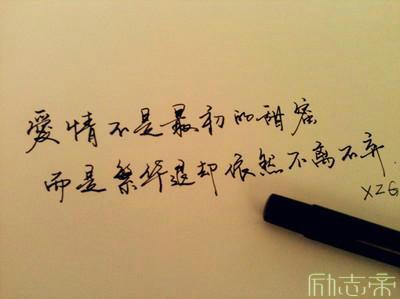 愛情不是最初的甜蜜
而是繁华退却依然不离不弃.
XZG
励志帝